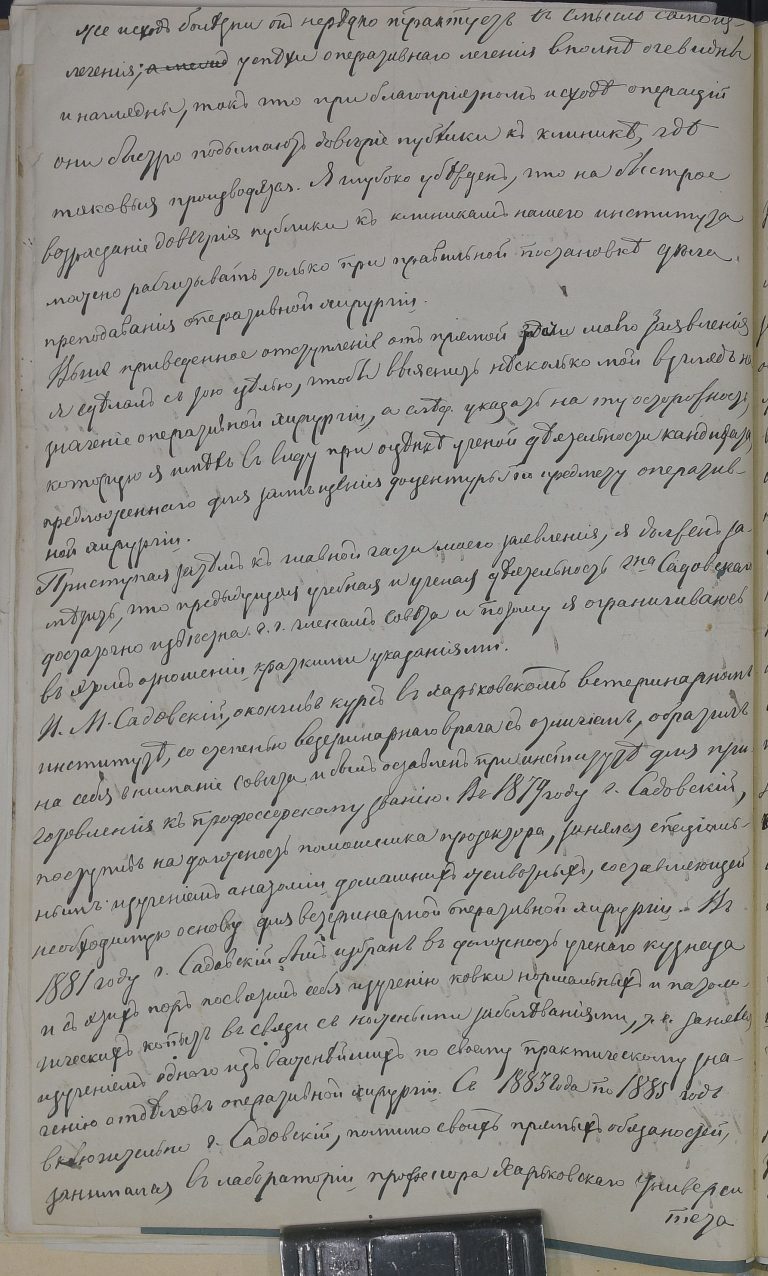 же исходъ болѣзни онъ нерѣдко трактуетъ въ смыслѣ самоиз-
леченія; успѣхи оперативнаго леченія вполнѣ очевидны
и наглядны, такъ что при благопріятномъ исходѣ операцій
они быстро подымаютъ довѣріе публики къ клиникѣ, гдѣ
таковыя производятся. Я глубоко убѣжденъ, что на быстрое
возрастаніе довѣрія публики къ клиникамъ нашего института
можно расчитывать только при правильной постановкѣ дѣла
преподаванія оперативной хирургіи.
Выше приведенное отступленіе отъ прямой цѣли моего заявленія
я сдѣлалъ съ тою цѣлью, чтобы выяснить нѣсколько мой взглядъ на
значеніе оперативной хирургіи, а слѣд. указать на ту осторожность,
которую я имѣлъ въ виду при оцѣнкѣ ученой дѣятельности кандидата,
предложеннаго для замѣщенія доцентуры по предмету оператив-
ной хирургіи.
Приступая затѣмъ къ главной части моего заявленія, я долженъ за-
мѣтить, что предыдущая учебная и ученая дѣятельность г-на Садовскаго
достаточно извѣстна г.г. членамъ Совѣта и потому я ограничиваюсь
въ этомъ отношеніи краткими указаніями.
И. М. Садовскій, окончивъ курсъ въ Харьковскомъ ветеринарномъ
институтѣ, со степенью ветеринарнаго врача съ отличіемъ, обратилъ
на себя вниманіе Совѣта и былъ оставленъ при институтѣ для при-
готовленія къ профессорскому званію. Въ 1879 году г. Садовскій,
поступивъ на должность помощника прозектора, занялся спеціаль-
нымъ изученіемъ анатоміи домашнихъ животныхъ, составляющей
необходимую основу для ветеринарной оперативной хирургіи. Въ
1881 году г. Садовскій былъ избранъ въ должность ученаго кузнеца
и съ этихъ поръ посвятилъ себя изученію ковки нормальныхъ и патоло-
гическихъ копытъ въ связи съ копытными заболѣваніями, т.е. занялся
изученіемъ одного изъ важнѣйшихъ по своему практическому зна-
ченію отдѣловъ оперативной хирургіи. Съ 1883 года по 1885 годъ
включительно г. Садовскій, помимо своихъ прямыхъ обязаностей,
занимался въ лабораторіи профессора Харьковскаго Универси
тета